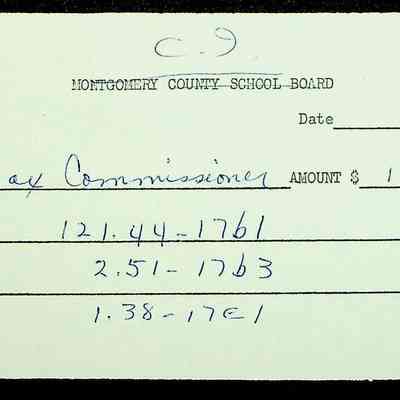 C. I
MONTGOMERY COUNTY SCHOOL BOARD
Date
ax Commissioner AMOUNT $ 1
121.44-17b1
2.51-17b3
1.38-17E1